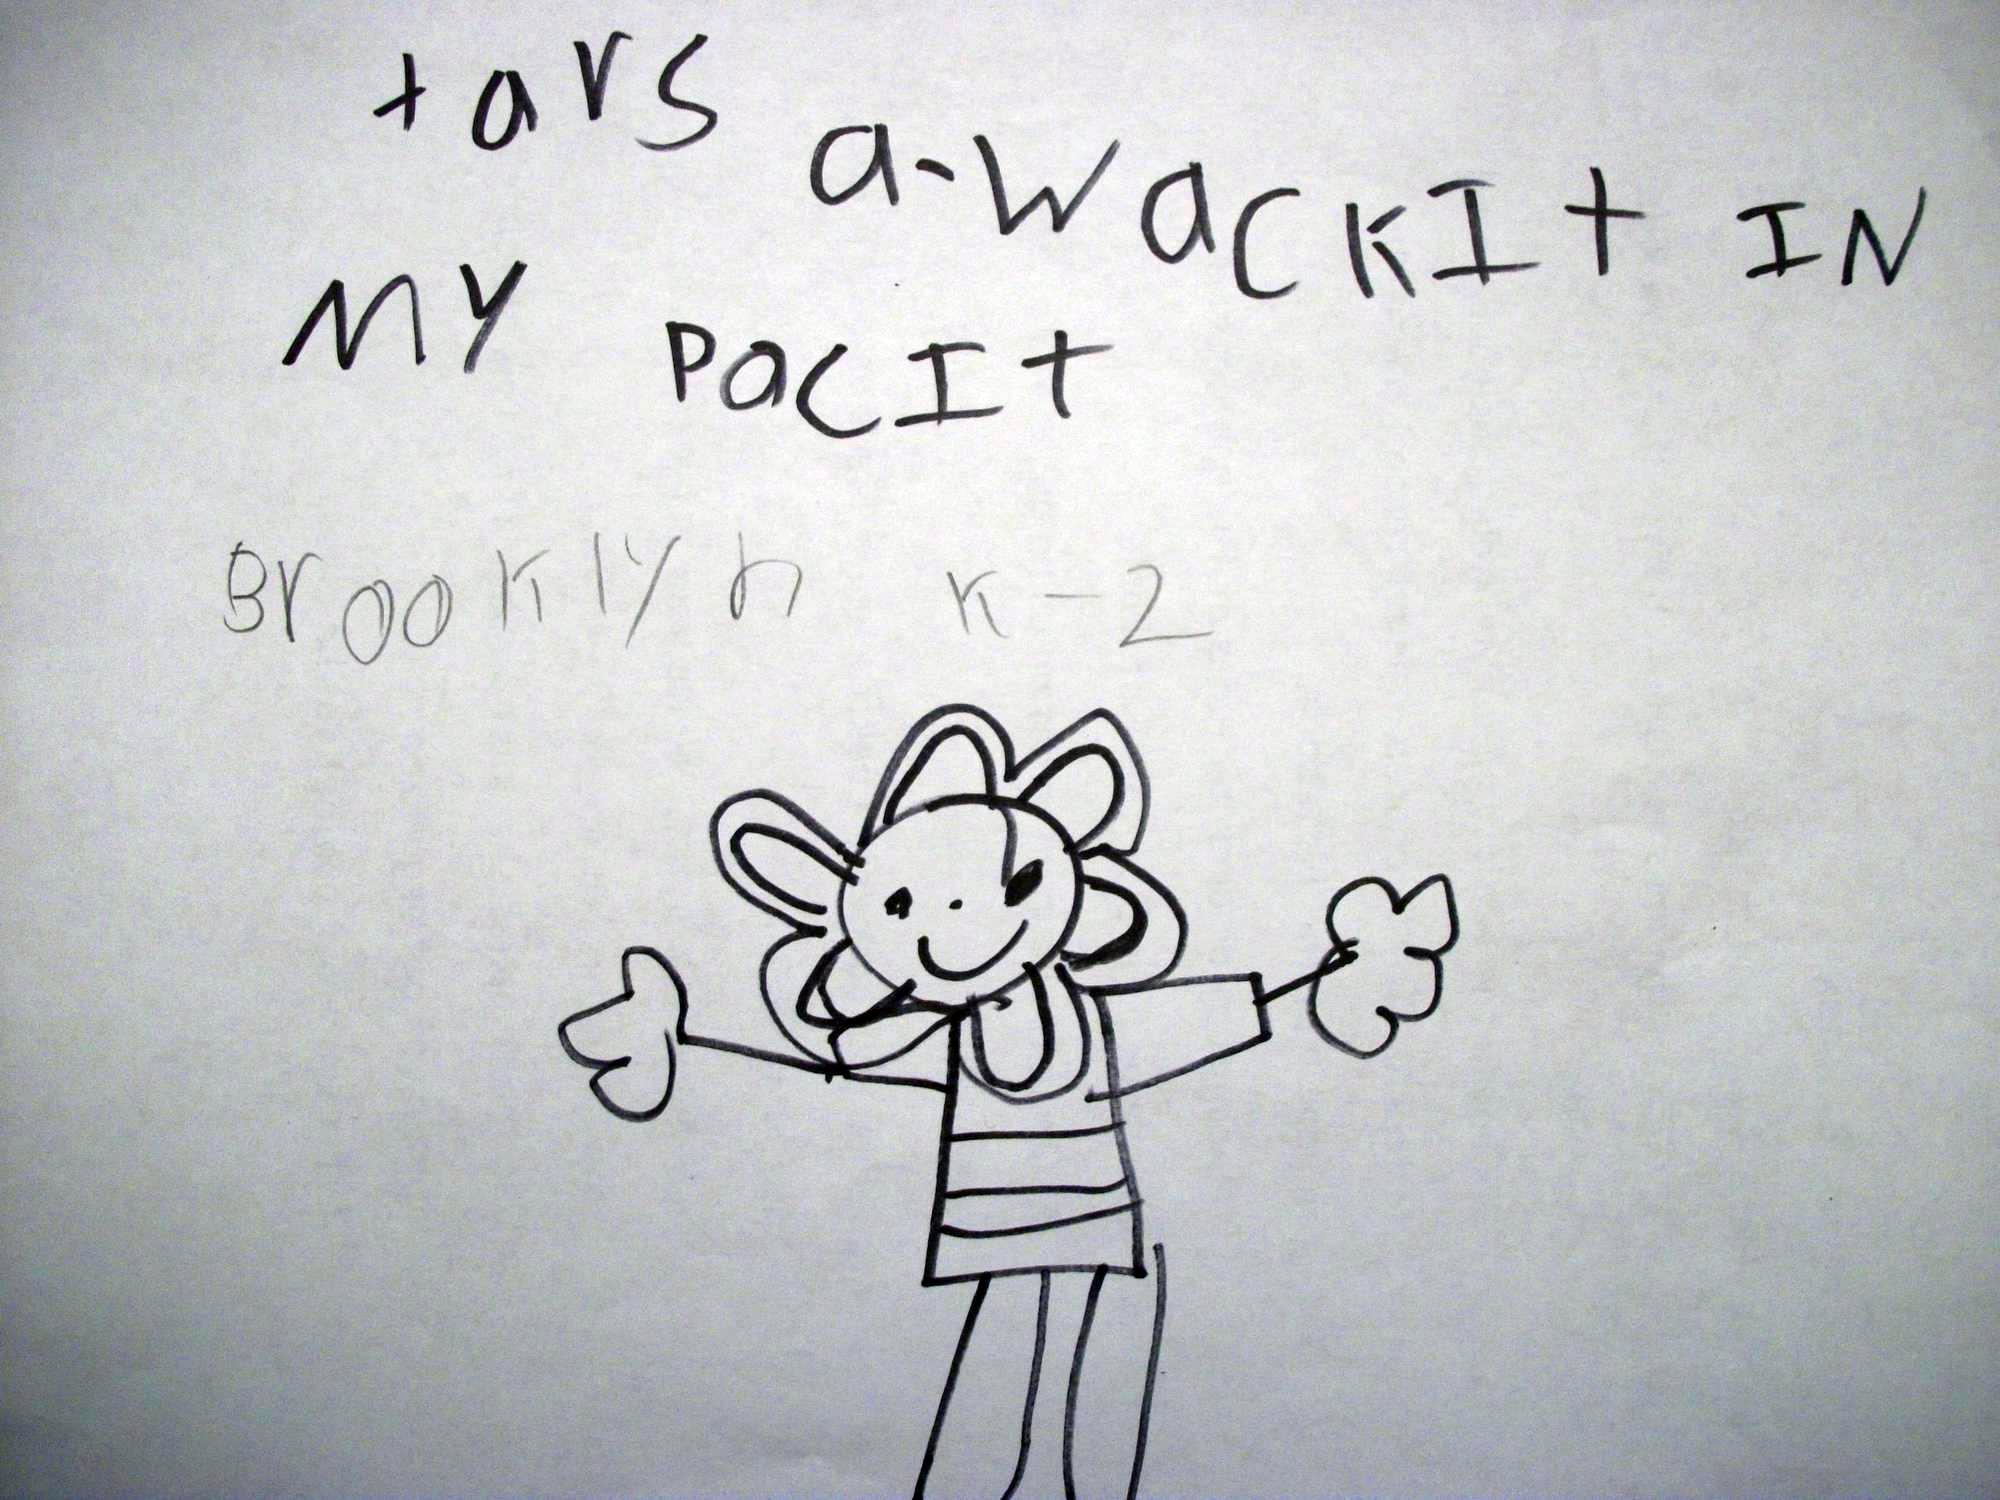 tars a-wackIt IN
MY PacIt
Brooklyn K-2